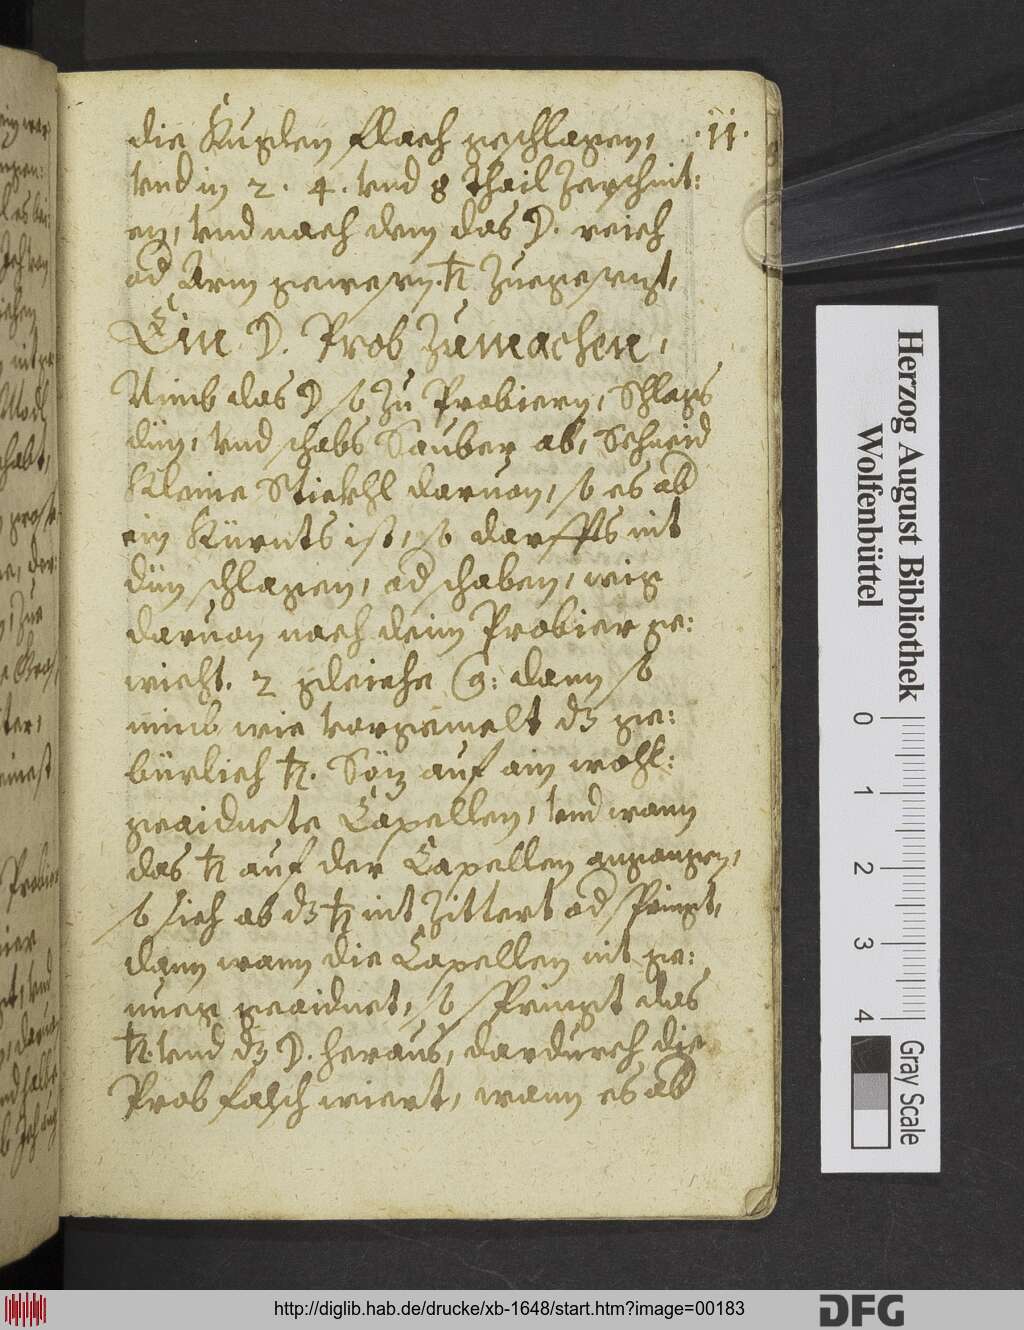 die Kuglen flach geschlagen,
.11.
Vnd in 2. 4. Vnd 8 thail Zerschnit:
en, Vnd nach dem das ☽. reich
od Arm gewesen. ♄ Zuegesezt,
Ein ☽. Prob Zumachen,
Nimb das ☽ so Zu Probiern, Schlags
dün, Vnd schabs Sauber ab, Schneid
Kleine Stickhl daruon, so es ab
ein Kürnts ist, so darffts nit
dün schlagen, od schaben, wig
daruon nach deim Probier ge:
wicht. 2 gleiche dann so
nimb wie Vorgemelt dz ge:
bürlich ♄. Söz auf ain wohl:
geaidnete Capellen, Vnd wann
das ♄ auf der Capellen angangen,
so sich ab dz ♄ nit Zittert od springt,
dann wann die Capellen nit ge:
nueg geaidnet, so springt das
♄. Vnd dz ☽. heraus, dardurch die
Prob falsch wiert, wann es ab
Herzog August Bibliothek
Wolfenbüttel
0 1 2 3 4
Gray Scale
http://diglib.hab.de/drucke/xb-1648/start.htm?image=00183
DFG